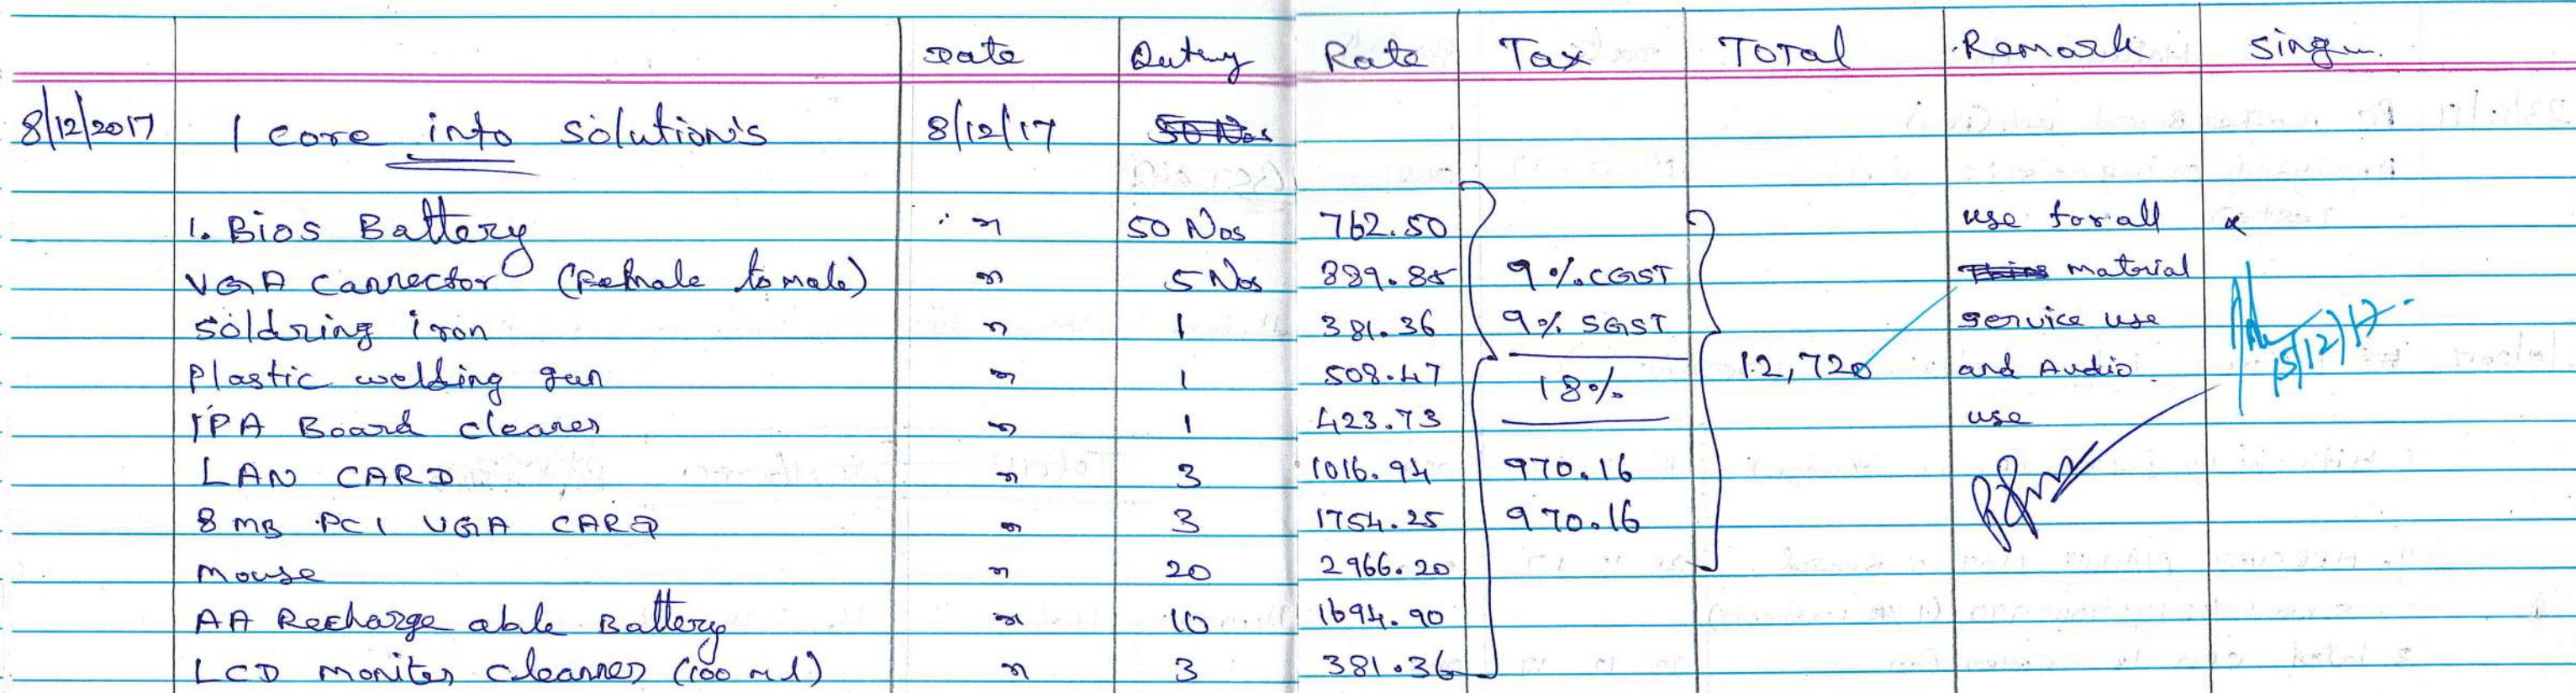 Date Qutny Rate Tax TOTAL Remark Singn
8/12/2017 I core into solution's 8/12/17 50 Nos
1. Bios Battery " 50 Nos 762.50 use for all
VGA Connector (Female to male) " 5 Nos 889.85 9% CGST material
Soldring iron " 1 381.36 9% SGST service use
Plastic welding gun " 1 508.47 18% 12,720 and Audio 15/12/17
IPA Board cleaner " 1 423.73 use
LAN CARD " 3 1016.94 970.16
8 MB PCI VGA CARD " 3 1754.25 970.16
Mouse " 20 2966.20
AA Recharge able Battery " 10 1694.90
LCD moniter cleanner (100 ml) " 3 381.36